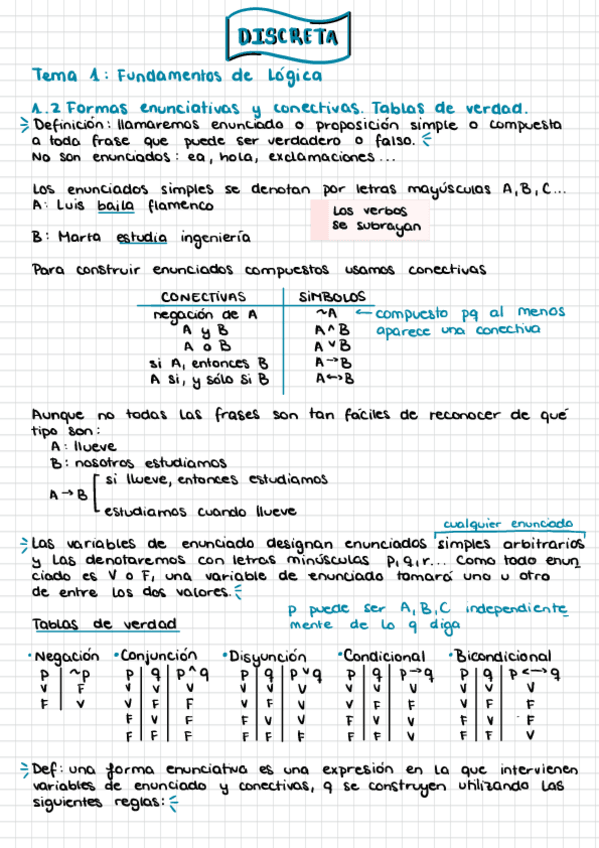 DISCRETA
Tema 1: Fundamentos de Lógica
1.2 Formas enunciativas y conectivas. Tablas de verdad.
Definición: llamaremos enunciado o proposición simple o compuesta
a toda frase que puede ser verdadero o falso.
No son enunciados: ea, hola, exclamaciones...
Los enunciados simples se denotan por letras mayúsculas A, B, C...
A: Luis baila flamenco
Los verbos
se subrayan
B: Marta estudia ingeniería
Para construir enunciados compuestos usamos conectivas
CONECTIVAS SIMBOLOS
negación de A ~A ← compuesto pq al menos
A y B A ∧ B aparece una conectiva
A o B A ∨ B
si A, entonces B A → B
A si, y sólo si B A ↔ B
Aunque no todas las frases son tan fáciles de reconocer de qué
tipo son:
A: llueve
B: nosotros estudiamos
si llueve, entonces estudiamos
A → B
estudiamos cuando llueve
cualquier enunciado
Las variables de enunciado designan enunciados simples arbitrarios
y las denotaremos con letras minúsculas p, q, r... Como todo enun
ciado es V o F, una variable de enunciado tomará uno u otro
de entre los dos valores.
p puede ser A, B, C independiente
mente de lo q diga
Tablas de verdad
• Negación • Conjunción • Disyunción • Condicional • Bicondicional
p ~p p q p ∧ q p q p ∨ q p q p → q p q p ↔ q
V F V V V V V V V V V V V V
F V V F F V F V V F F V F F
F V F F V V F V V F V F
F F F F F F F F V F F V
Def: una forma enunciativa es una expresión en la que intervienen
variables de enunciado y conectivas, q se construyen utilizando las
siguientes reglas: